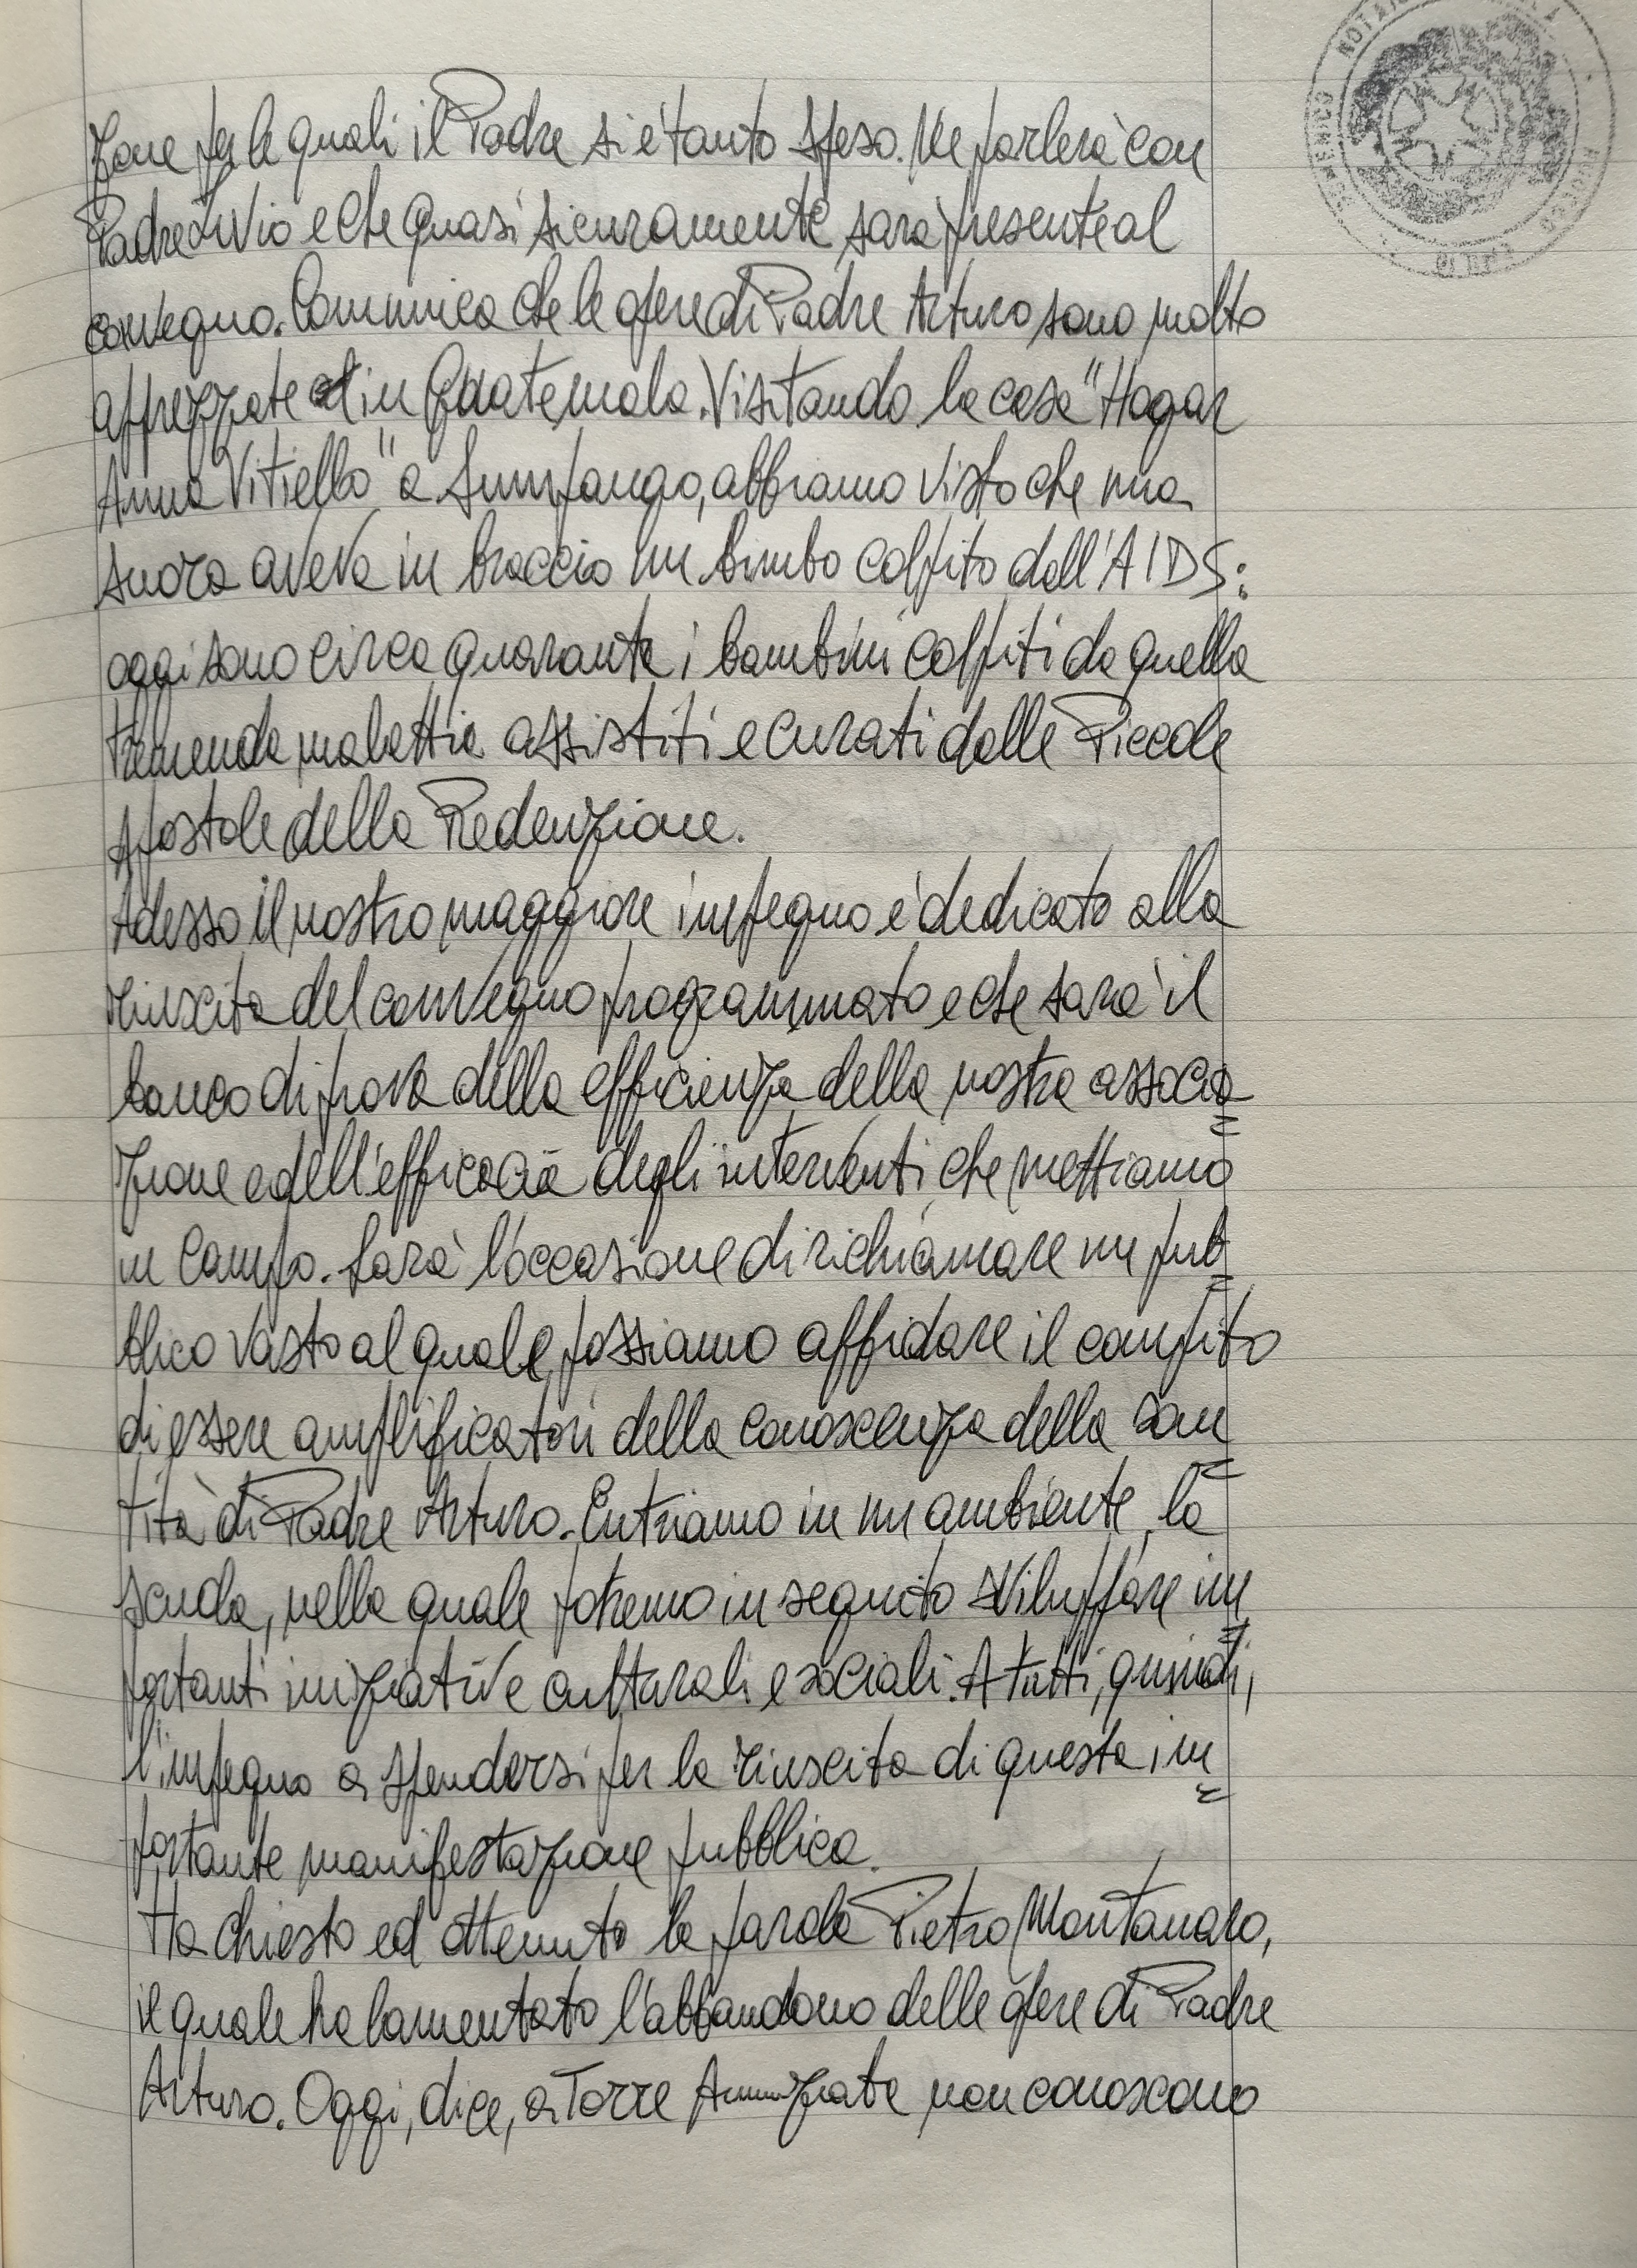 zone per le quali il Padre si è tanto speso. Ne parlerà con
Padre Livio e che quasi sicuramente sarà presente al
convegno. Comunica che le opere di Padre Arturo sono molto
apprezzate in Guatemala. Visitando la casa "Hogar
Anna Vitiello" a Sumpango, abbiamo visto che una
suora aveva in braccio un bimbo colpito dall'AIDS:
oggi sono circa quaranta i bambini colpiti da quella
tremenda malattia assistiti e curati dalle Piccole
Apostole della Redenzione.
Adesso il nostro maggiore impegno è dedicato alla
riuscita del convegno programmato e che sarà il
banco di prova della efficienza della nostra associa=
zione e dell'efficacia degli interventi che mettiamo
in campo. Sarà l'occasione di richiamare un pub=
blico vasto al quale possiamo affidare il compito
di essere amplificatori della conoscenza della san=
tità di Padre Arturo. Entriamo in un ambiente, la
scuola, nella quale potremo in seguito sviluppare im=
portanti iniziative culturali e sociali. A tutti, quindi,
l'impegno a spendersi per la riuscita di questa im=
portante manifestazione pubblica.
Ha chiesto ed ottenuto la parola Pietro Montanaro,
il quale ha lamentato l'abbandono delle opere di Padre
Arturo. Oggi, dice, a Torre Annunziata non conoscono
NOTAIO